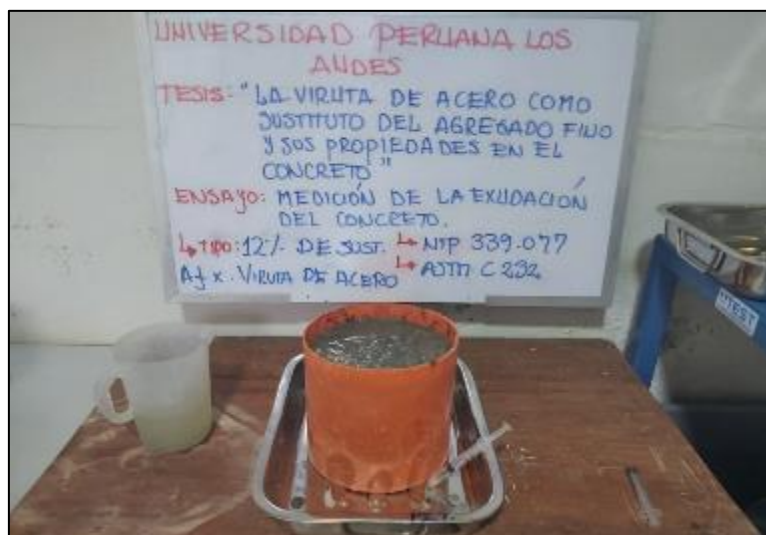 UNIVERSIDAD PERUANA LOS
ANDES
TESIS: "LA VIRUTA DE ACERO COMO
SUSTITUTO DEL AGREGADO FINO
Y SUS PROPIEDADES EN EL
CONCRETO"
ENSAYO: MEDICIÓN DE LA EXUDACIÓN
DEL CONCRETO.
↳ TIPO: 12% DE SUST. ↳ NTP 339.077
Af x. VIRUTA DE ACERO ↳ ASTM C 232
TEST